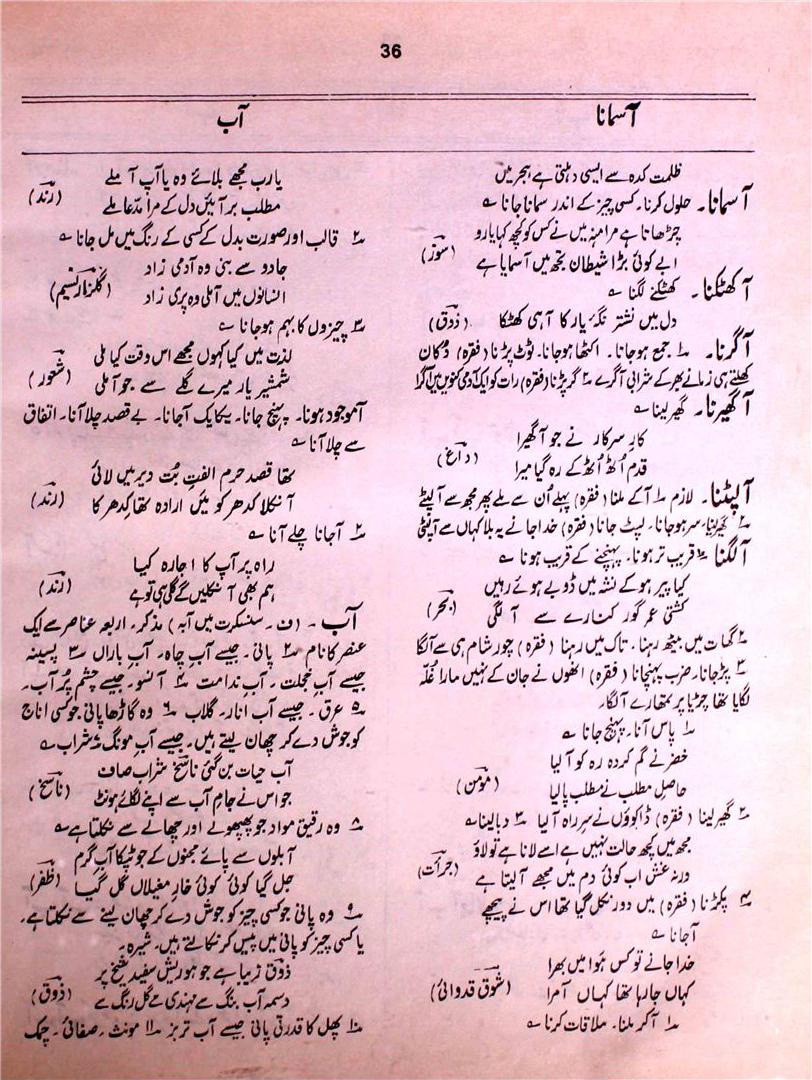 36
آسمانا
آب
ظلمت کدہ سے ایسی دہلتی ہے ہجر میں
آسمانا۔ حلول کرنا۔ کسی چیز کے اندر سمانا جانا ؎
چڑھانا ہے مرا منہ میں نے کس کو کچھ کہا یارو
ابے کوئی بڑا شیطان تجھ میں آسمایا ہے (سوز)
آکھٹکنا۔ کھٹکنے لگنا ؎
دل میں نشتر نگہ یار کا آہی کھٹکا (ذوق)
آگرنا۔ ۱؎ جمع ہوجانا۔ اکٹھا ہوجانا۔ ٹوٹ پڑنا (فقرہ) دُکان
کھلتے ہی زمانے بھر کے شرابی آگرے ۲؎ گر پڑنا (فقرہ) رات کو ایک آدمی کنویں میں آگرا
آگھیرنا۔ گھیر لینا ؎
کارِ سرکار نے جو آگھیرا
قدم اُٹھ اُٹھ کے رہ گیا میرا (داغ)
آلپٹنا۔ لازم ۱؎ آکے ملنا (فقرہ) پہلے اُن سے ملے پھر مجھ سے آلپٹے
۲؎ سر ہوجانا۔ لپٹ جانا (فقرہ) خدا جانے یہ بلا کہاں سے آلپٹی
آلگنا ۱؎ قریب تر ہونا۔ پہنچنے کے قریب ہونا ؎
کیا پیر ہو کے نشہ میں ڈوبے ہوئے رہیں
کشتی عمر گور کنارے سے آ لگی (بحر)
۲؎ گھات میں بیٹھ رہنا۔ تاک میں رہنا (فقرہ) چور شام ہی سے آلگا
۳؎ پڑجانا۔ ضرب پہنچانا (فقرہ) انھوں نے جان کے نہیں مارا غُلّہ
لگایا تھا چڑیا پر تمھارے آلگا۔
۱؎ پاس آنا۔ پہنچ جانا ؎
خضر نے گم کردہ رہ کو آلیا
حاصل مطلب نے مطلب پالیا (مومن)
۲؎ گھیر لینا (فقرہ) ڈاکوؤں نے سرِ راہ آلیا ۳؎ دبا لینا ؎
مجھ میں کچھ حالت نہیں ہے اسے لانا ہے تو لاؤ
ورنہ غش اب کوئی دم میں مجھے آلیتا ہے (جرأت)
۴؎ پکڑنا (فقرہ) میں دور نکل گیا تھا اس نے پیچھے
آجانا ؎
خدا جانے تو کس ہوا میں بھرا
کہاں جارہا تھا کہاں آمرا (شوق قدوائی)
۱؎ آکر ملنا۔ ملاقات کرنا ؎
یا رب مجھے بلائے وہ یا آپ آ ملے
مطلب بر آئیں دل کے مرا مدعا ملے (رند)
۲؎ قالب اور صورت بدل کے کسی کے رنگ میں مل جانا ؎
جادو سے بنی وہ آدمی زاد
انسانوں میں آملی وہ پری زاد (گلزار نسیم)
۳؎ چیزوں کا بہم ہوجانا ؎
لذت میں کیا کہوں مجھے اس وقت کیا ملی
شمشیر یار میرے گلے سے جو آملی (شعور)
آموجود ہونا۔ پہنچ جانا۔ یکایک آجانا۔ بے قصد چلا آنا۔ اتفاق
سے چلا آنا ؎
تھا قصد حرم الفتِ بُت دیر میں لائی
آ نکلا کدھر کو میں ارادہ تھا کدھر کا (رند)
۲؎ آجانا چلے آنا ؎
راہ پر آپ کا اجارہ کیا
ہم بھی آ نکلیں گے گلی ہی تو ہے (رند)
آب۔ (ف۔ سنسکرت میں آبہ) مذکر۔ اربعہ عناصر سے ایک
عنصر کا نام ۲؎ پانی۔ جیسے آبِ چاہ۔ آبِ باراں ۳؎ پسینہ
جیسے آبِ خجلت۔ آبِ ندامت ۴؎ آنسو۔ جیسے چشم پُر آب۔
۵؎ عرق۔ جیسے آب انار۔ گلاب ۶؎ وہ گاڑھا پانی جو کسی اناج
کو جوش دے کر چھان لیتے ہیں۔ جیسے آبِ مونگ ۷؎ شراب ؎
آب حیات بن گئی ناسخ شراب صاف
جو اس نے جامِ آب سے اپنے لگائے ہونٹ (ناسخ)
۸؎ وہ رقیق مواد جو پھپھولے اور چھالے سے نکلتا ہے ؎
آبلوں سے پائے مجنوں کے جو ٹپکا آبِ گرم
جل گیا کوئی کوئی خارِ مغیلاں گل گیا (ظفر)
۹؎ وہ پانی جو کسی چیز کو جوش دے کر چھان لینے سے نکلتا ہے۔
یا کسی چیز کو پانی میں پیس کر نکالتے ہیں۔ شیرہ۔
ذوق زیبا ہے جو ہو ریش سفید شیخ پر
وسمہ آب بنگ سے مہندی مے گل رنگ سے (ذوق)
۱۰؎ پھل کا قدرتی پانی جیسے آب تربز ۱۱؎ مونث۔ صفائی۔ چمک